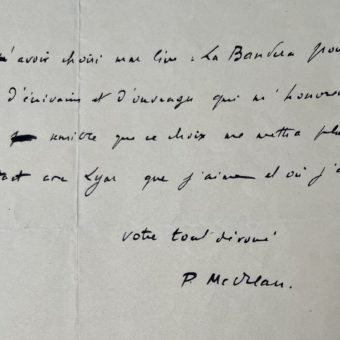 m'avoir choisi mon livre : La Bandera pour
d'écrivains et d'ouvrages qui m'honore
que ce choix me mettra plus
avec Lyon que j'aime et où j'a
votre tout dévoué
P. Mc Orlan.